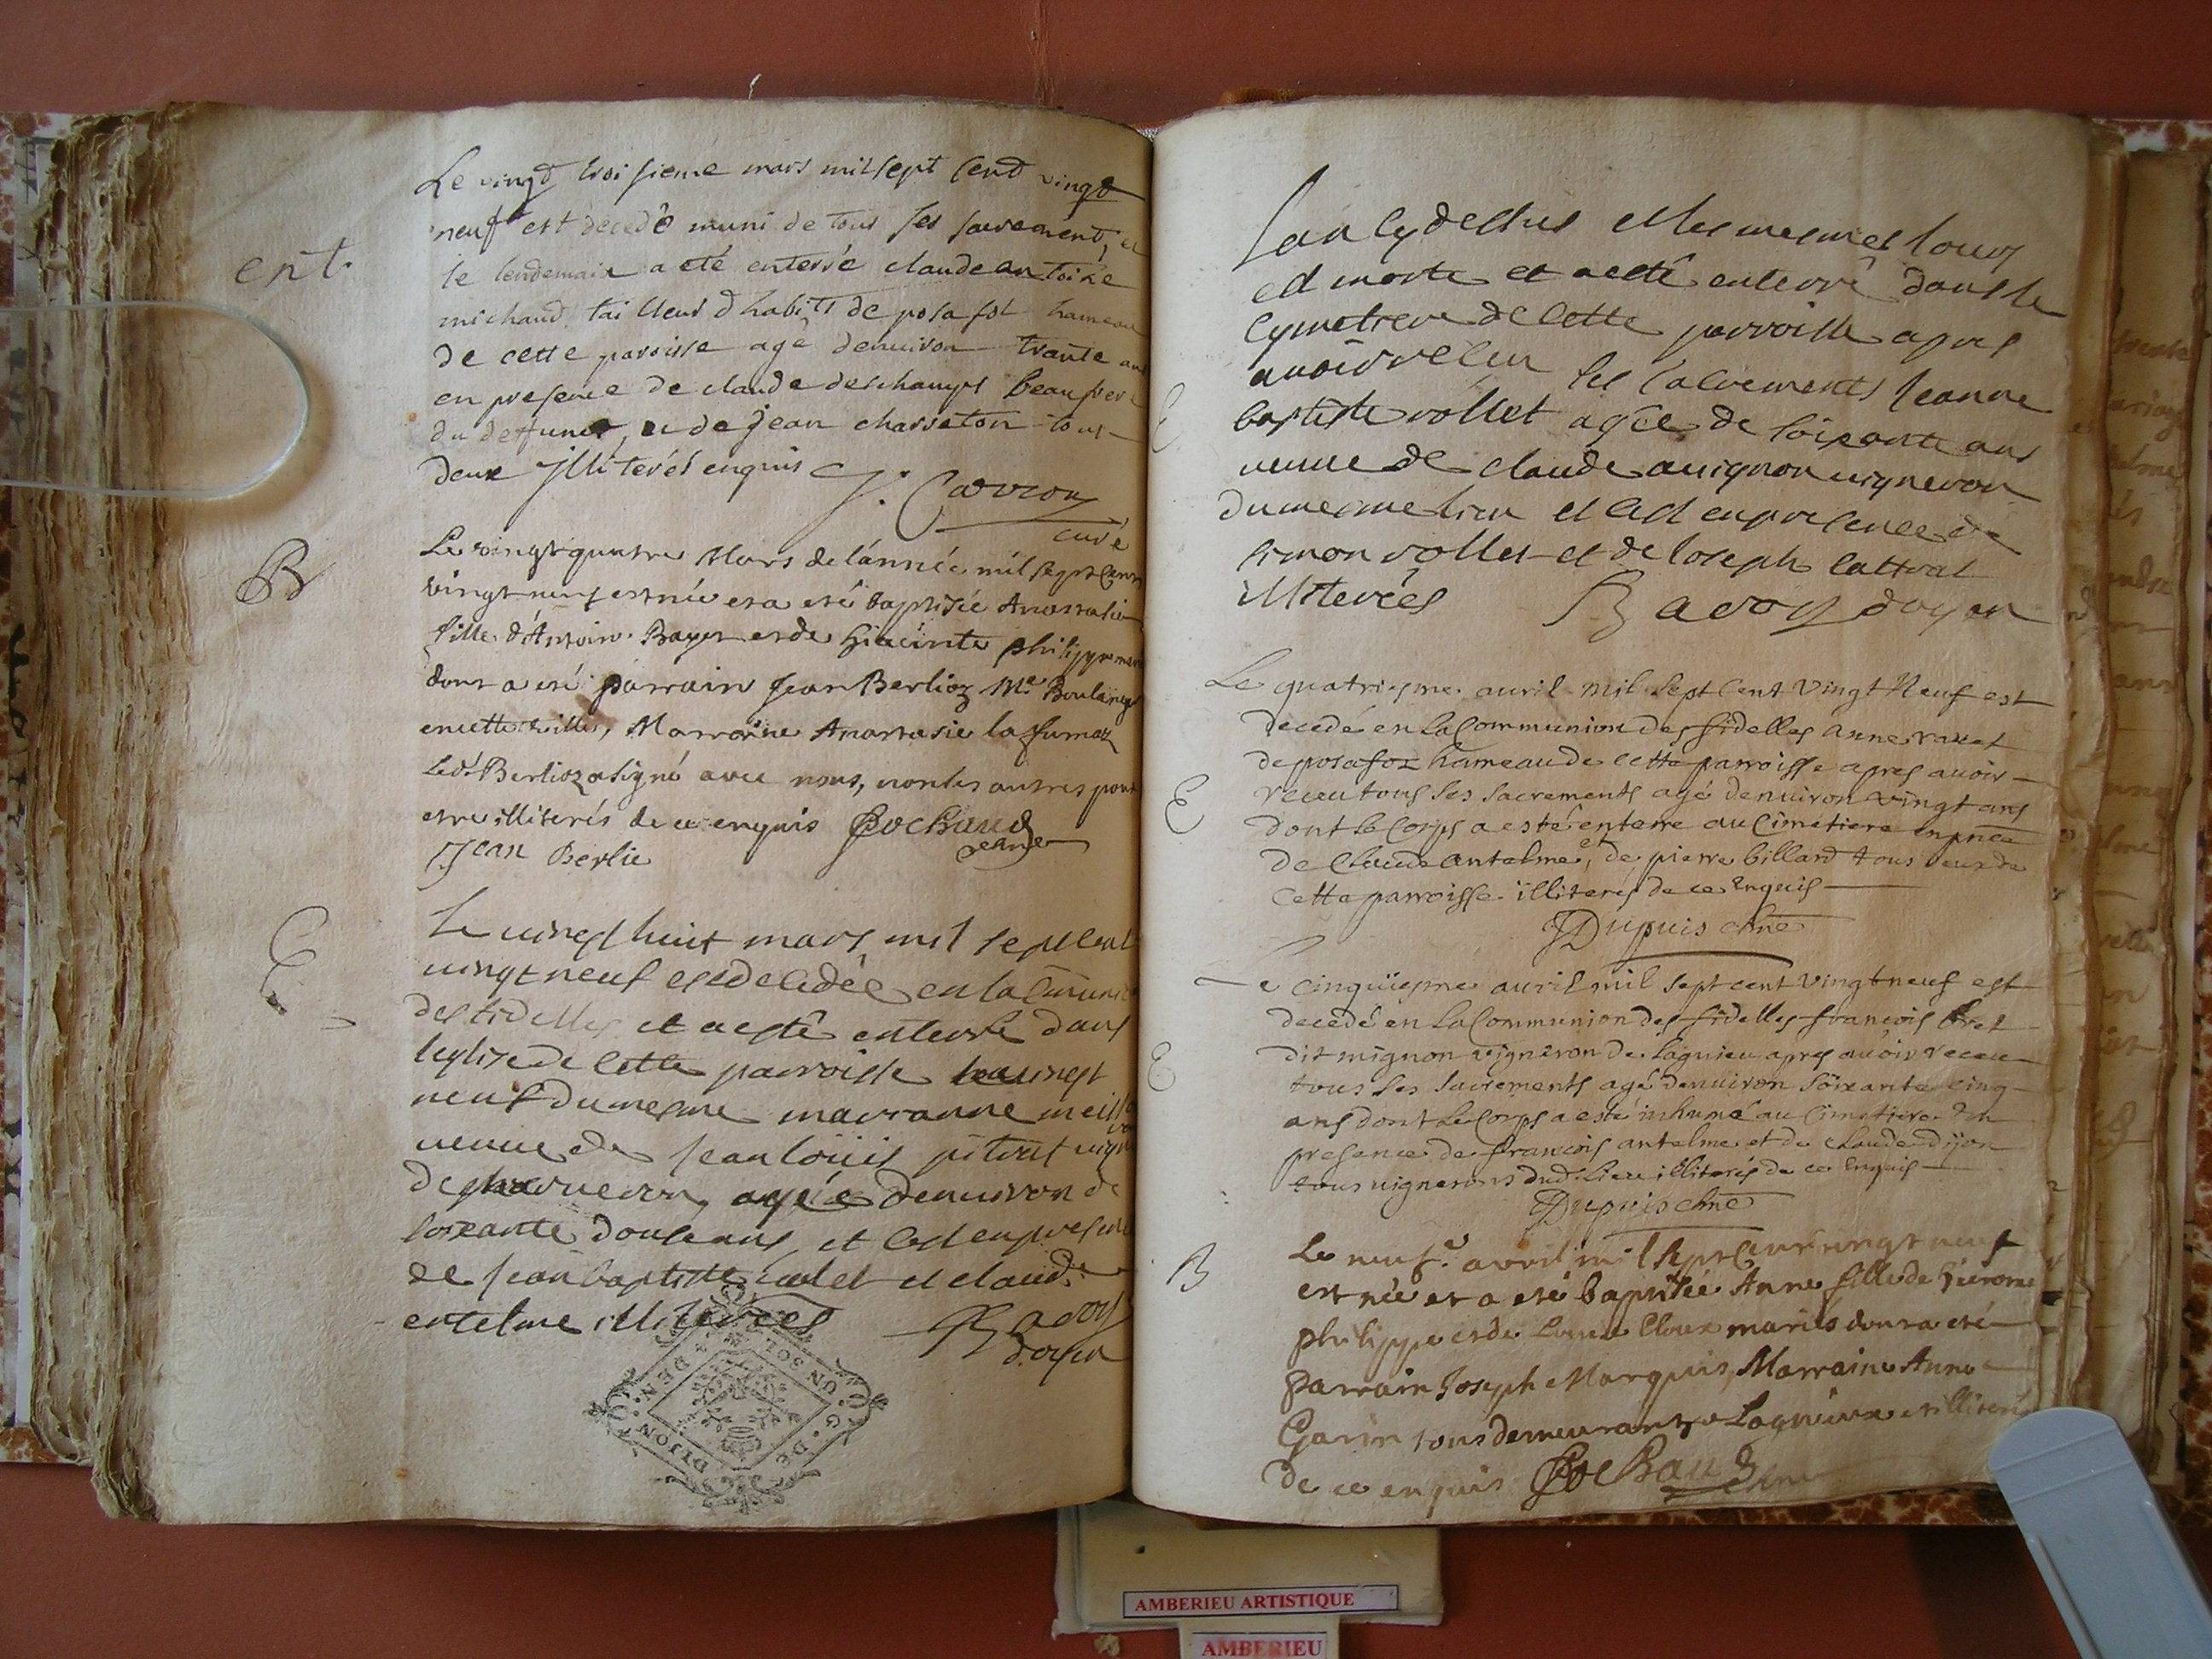 ent.
Le vingt troisieme mars mil sept cent vingt
neuf est decedé muni de tous ses sacrement, et
le lendemain a eté enterré claude antoine
michaud tailleur d'habits de posafol hameau
de cette paroisse agé denuiron trante ans
en presence de claude deschamps beaufrere
du deffunct, et de jean charreton tous
deux jlliterés enquis
curé
B
Le vingt quatre Mars de l'année mil sept cent
vingt neuf est née et a eté baptisée Anastasie
fille d'Antoine Bayet et de hiacinte philippe mariés
dont a eté parrain Jean Berlioz Me Boulanger
en cette ville, Marraine Anastasie la fumaz
Led. Berlioz a signé avec nous, non les autres pour
estre illiterés de ce enquis Rochaud
Jean Berlie
E
Le vingt huit mars mil sept cent
vingt neuf est decedée en la Cmunion
des fidelles et a esté enterré dans
leglise de cette parroisse le vingt
neuf du mesme marianne
veuve de Jean loüis
agée denuiron de
soixante douse ans, et cest en presence
de Jean baptiste et claude
entelme illiterées
doyen
G. DE DIJON UN SOL
lan cy dessus et les mesmes jour
est morte et a eté enterré dans le
cymetiere de cette parroisse apres
auoir recu les sacrements Jeanne
E
baptiste rollet agée de soixante ans
veuue de claude auignon uigneron
du mesme lieu et cest en presence de
simon rollet et de Joseph
illiterées doyen
Le quatriesme auril mil sept Cent vingt Neuf est
decedé en la Communion des fidelles Anne rauet
de posafoz hameau de cette parroisse apres auoir
E
receu tous ses sacrements agé denuiron vingt ans
dont le Corps a esté enterre au Cimetiere en pnce
de Claude antelme, et de pierre billard tous deux de
Cette parroisse illiterés de ce enquis
Dupuis
Le Cinquiesme auril mil sept cent vingt neuf est
decedé en la Communion des fidelles francois
E
dit mignon vigneron de Lagnieu apres auoir receu
tous les sacrements agé denuiron soixante cinq
ans dont le Corps a esté inhumé au Cimetiere En
presence de francois antelme et de claude dijon
tous uignerons dud. Lieu illiterés de ce enquis
Dupuis
B
Le neuf.e avril mil sept cent vingt neuf
est née et a eté baptisée Anne fille de hierome
philippe et de Cloux mariés dont a eté
parrain Joseph Marquis, Marraine Anne
Garin tous demeurants a Lagnieu et illiterés
de ce enquis Rochaud
AMBERIEU ARTISTIQUE
AMBERIEU